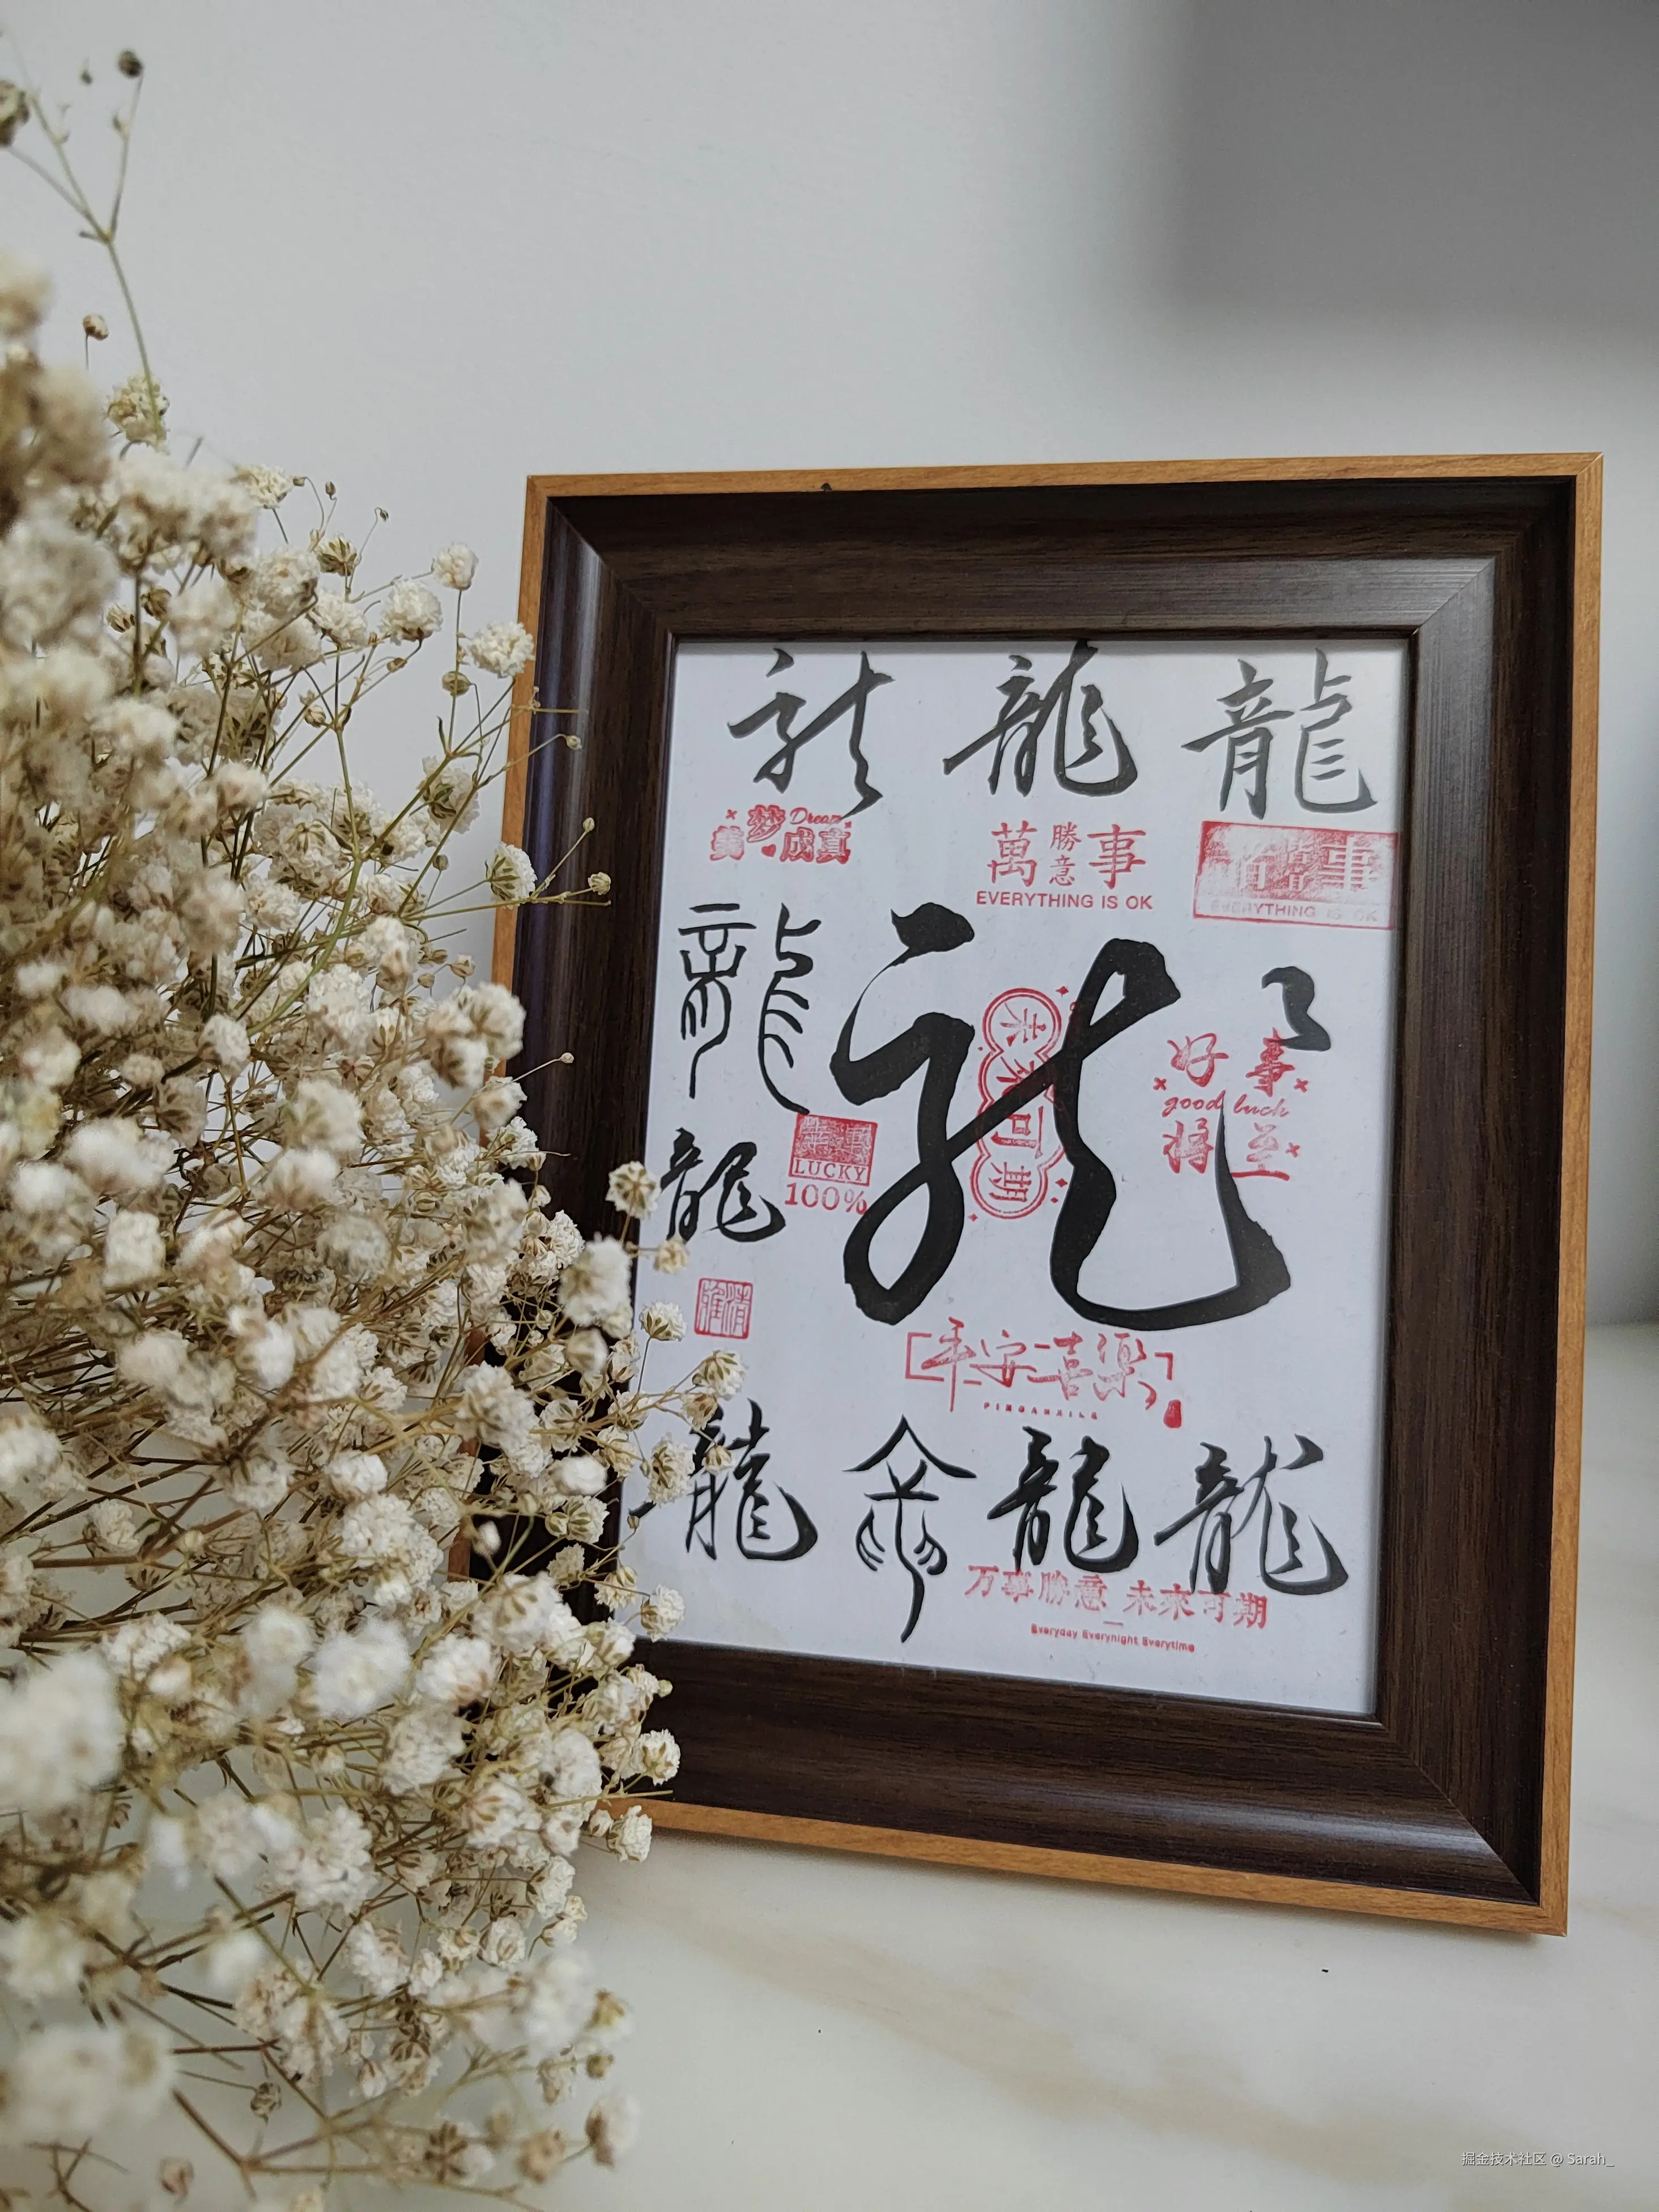 龍 龍 龍
美梦成真
Dream
萬勝意事
EVERYTHING IS OK
EVERYTHING IS OK
龍
龍
未来可期
好事
good luck
将至
龍
LUCKY
100%
平安喜樂
PINGANXILE
龍 龍 龍 龍
万事勝意 未来可期
Everyday Everynight Everytime
掘金技术社区 @ Sarah_